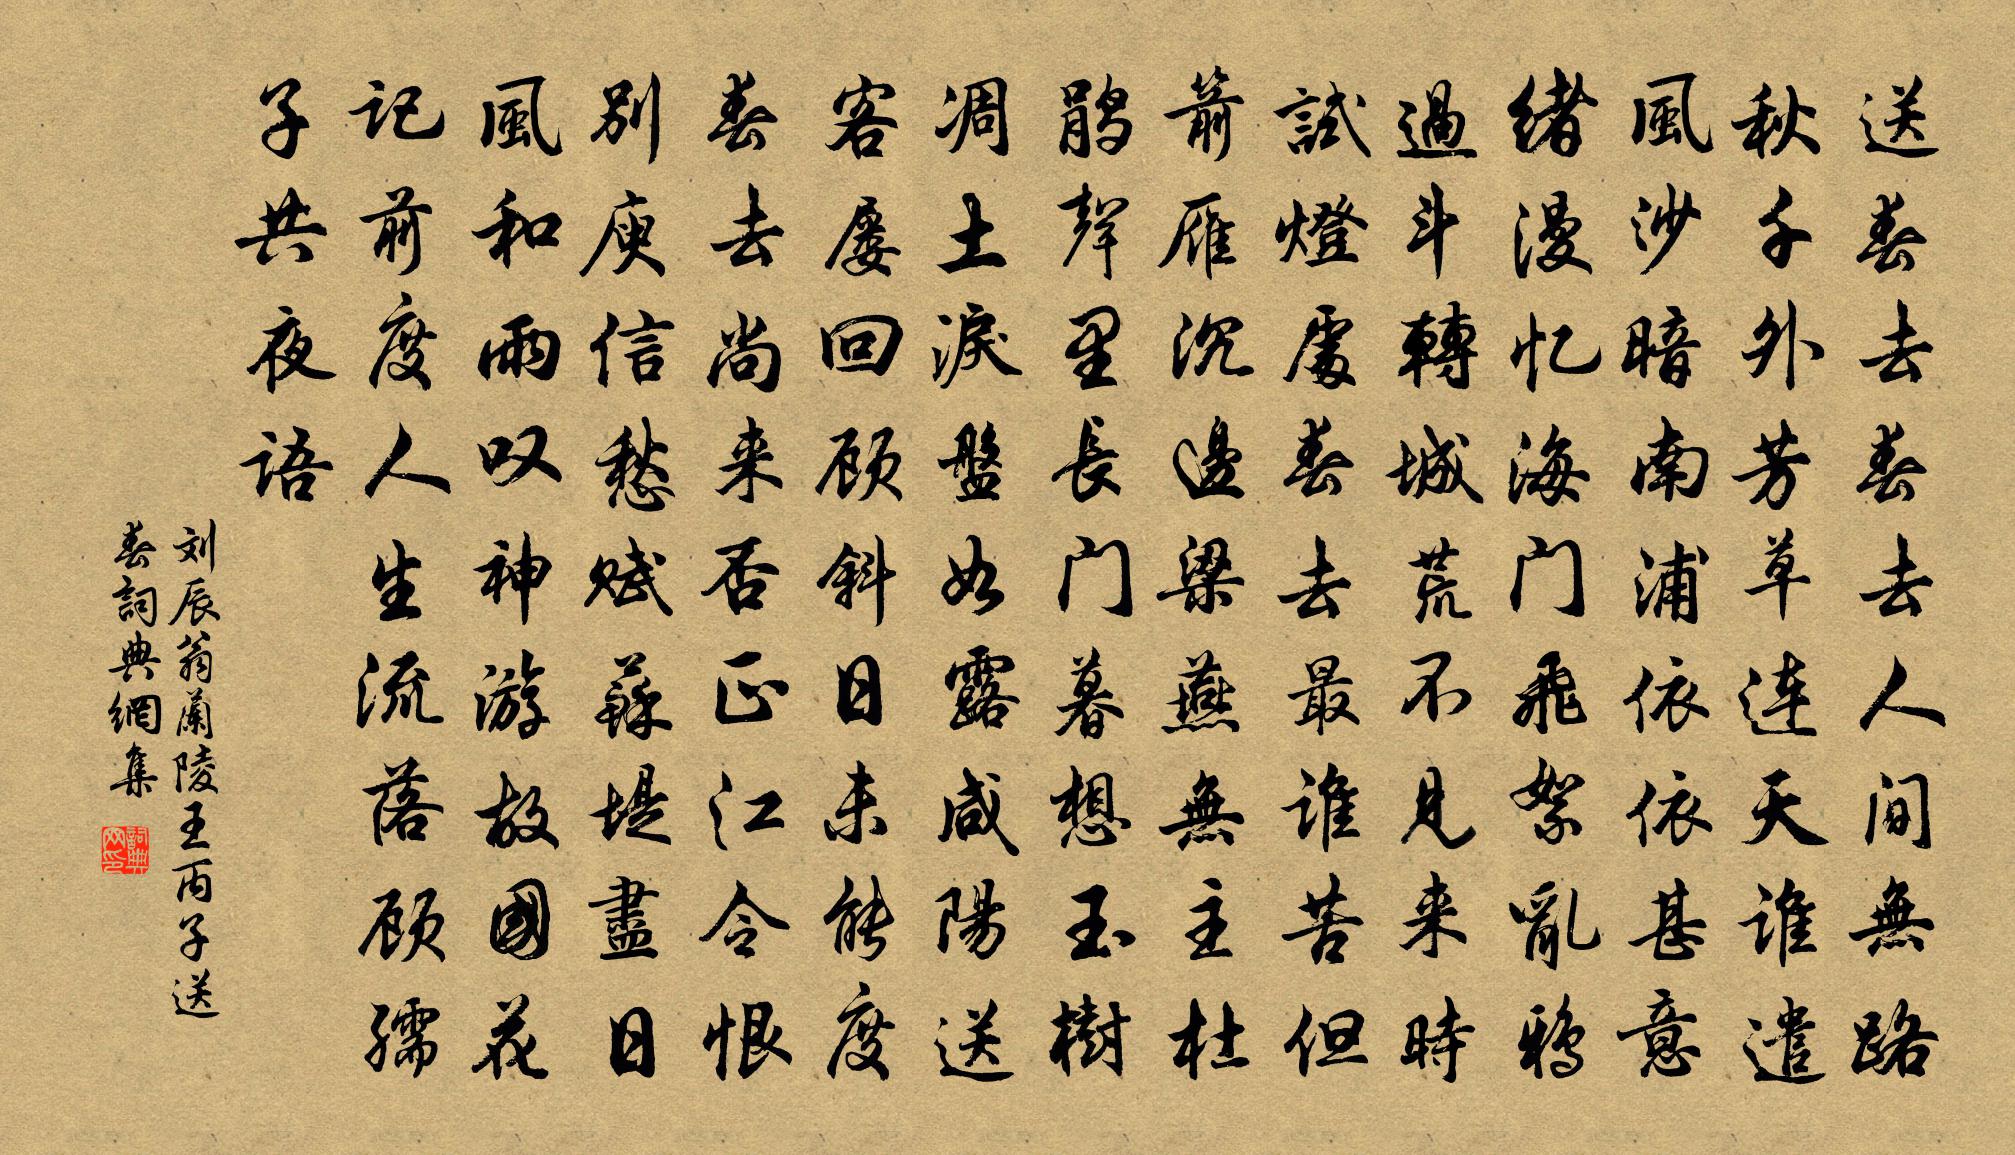 送春去春去人间無路
秋千外芳草连天谁遣
風沙暗南浦依依甚意
绪漫忆海门飛絮亂鸦
過斗轉城荒不見来時
試燈處春去最谁苦但
箭雁沉邊梁燕無主杜
鹃聲里長门暮想玉樹
凋土淚盤如露咸陽送
客屡回顾斜日未能度
春去尚来否正江令恨
别庾信愁赋蘇堤盡日
風和雨叹神游故國花
记前度人生流落顾孺
子共夜语
刘辰翁蘭陵王丙子送
春詞典網集
詞典网印